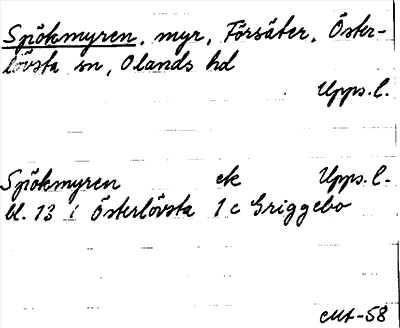 Spökmyren, myr, Försäter, Öster-
lövsta sn, Olands hd
Upps. l.
Spökmyren ek Upps. l.
bl. 13 i Österlövsta 1 c Griggebo
-58